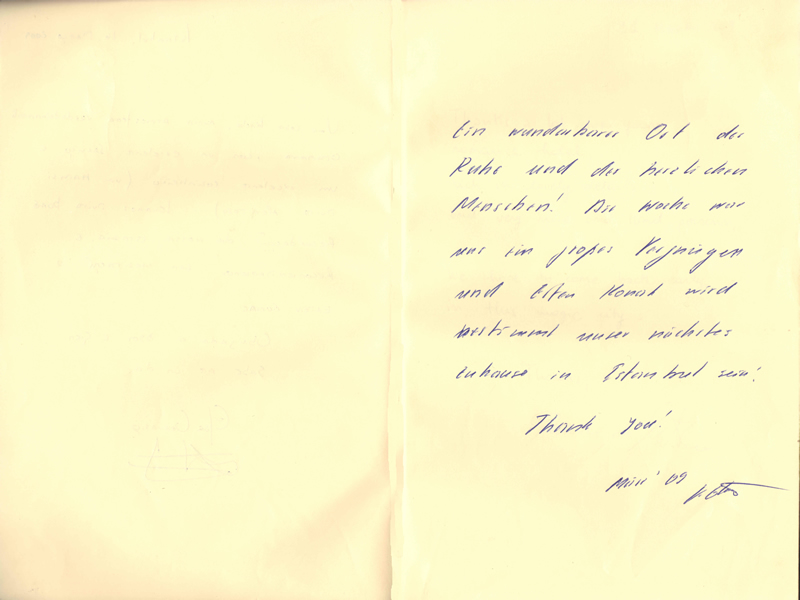 Ein wunderbarer Ort der
Ruhe und der herzlichen
Menschen! Die Woche war
uns ein großes Vergnügen
und Esten Konak wird
bestimmt unser nächstes
zuhause in Istanbul sein!
Thank you!
'09